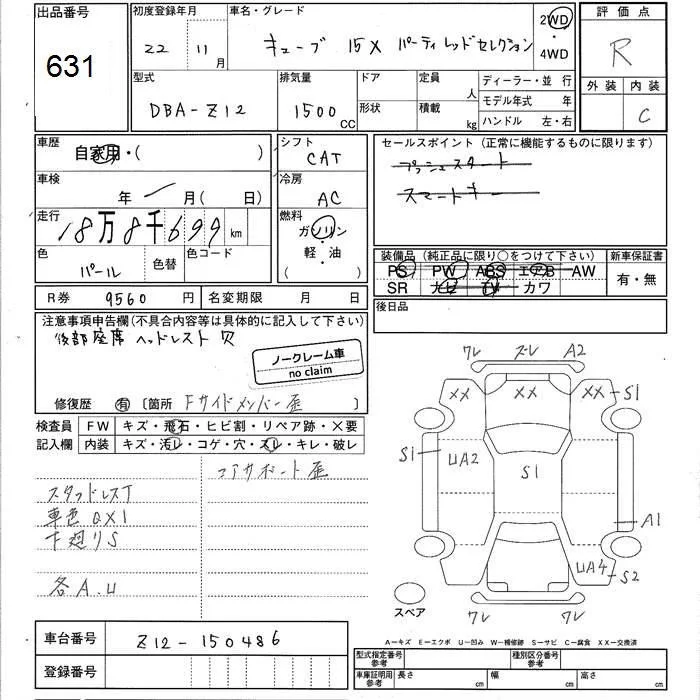 出品番号
631
初度登録年月
22 11月
車名・グレード
キューブ 15X パーティレッドセレクション
2WD
・
4WD
評価点
R
外装 内装
C
型式
DBA-Z12
排気量
1500CC
ドア
形状
定員
人
積載
kg
ディーラー・並 行
モデル年式 年
ハンドル 左・右
車歴
自家用・( )
シフト
CAT
セールスポイント(正常に機能するものに限ります)
プッシュスタート
スマートキー
車検
年 月( 日)
冷房
AC
走行
18万8千699km
燃料
ガソリン
・
軽・油
( )
色
パール
色替
色コード
装備品(純正品に限り○をつけて下さい)
PS PW ABS エアB AW
SR ナビ TV カワ
新車保証書
有・無
R券 9560円
名変期限 月 日
後日品
注意事項申告欄(不具合内容等は具体的に記入して下さい)
後部座席 ヘッドレスト 欠
ノークレーム車
no claim
修復歴 有 〔箇所 Fサイドメンバー歪
検査員
記入欄
FW キズ・飛石・ヒビ割・リペア跡・×要
内装 キズ・汚レ・コゲ・穴・スレ・キレ・破レ
コアサポート歪
スタッドレスT
車色 0X1
下廻りS
各A.U
ワレ ズレ A2
XX XX XX S1
S1 UA2 S1
A1
UA4 S2
スペア
ワレ ワレ
A-キズ E-エクボ U-凹み W-補修跡 S-サビ C-腐食 XX-交換済
車台番号 Z12-150486
登録番号
型式指定番号
参考
種別区分番号
参考
車庫証明用
参考
長さ cm 幅 cm 高さ cm